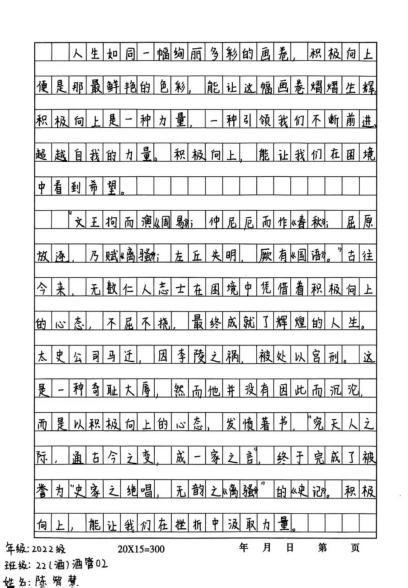 人生如同一幅绚丽多彩的画卷，积极向上
便是那最鲜艳的色彩，能让这幅画卷熠熠生辉。
积极向上是一种力量，一种引领我们不断前进、
超越自我的力量。积极向上，能让我们在困境
中看到希望。
“文王拘而演《周易》；仲尼厄而作《春秋》；屈原
放逐，乃赋《离骚》；左丘失明，厥有《国语》。”古往
今来，无数仁人志士在困境中凭借着积极向上
的心态，不屈不挠，最终成就了辉煌的人生。
太史公司马迁，因李陵之祸，被处以宫刑。这
是一种奇耻大辱，然而他并没有因此而沉沦，
而是以积极向上的心态，发愤著书，“究天人之
际，通古今之变，成一家之言”，终于完成了被
誉为“史家之绝唱，无韵之《离骚》”的《史记》。积极
向上，能让我们在挫折中汲取力量。
年级：2022级 20X15=300 年 月 日 第 页
班级：22（酒）酒管02
姓名：陈